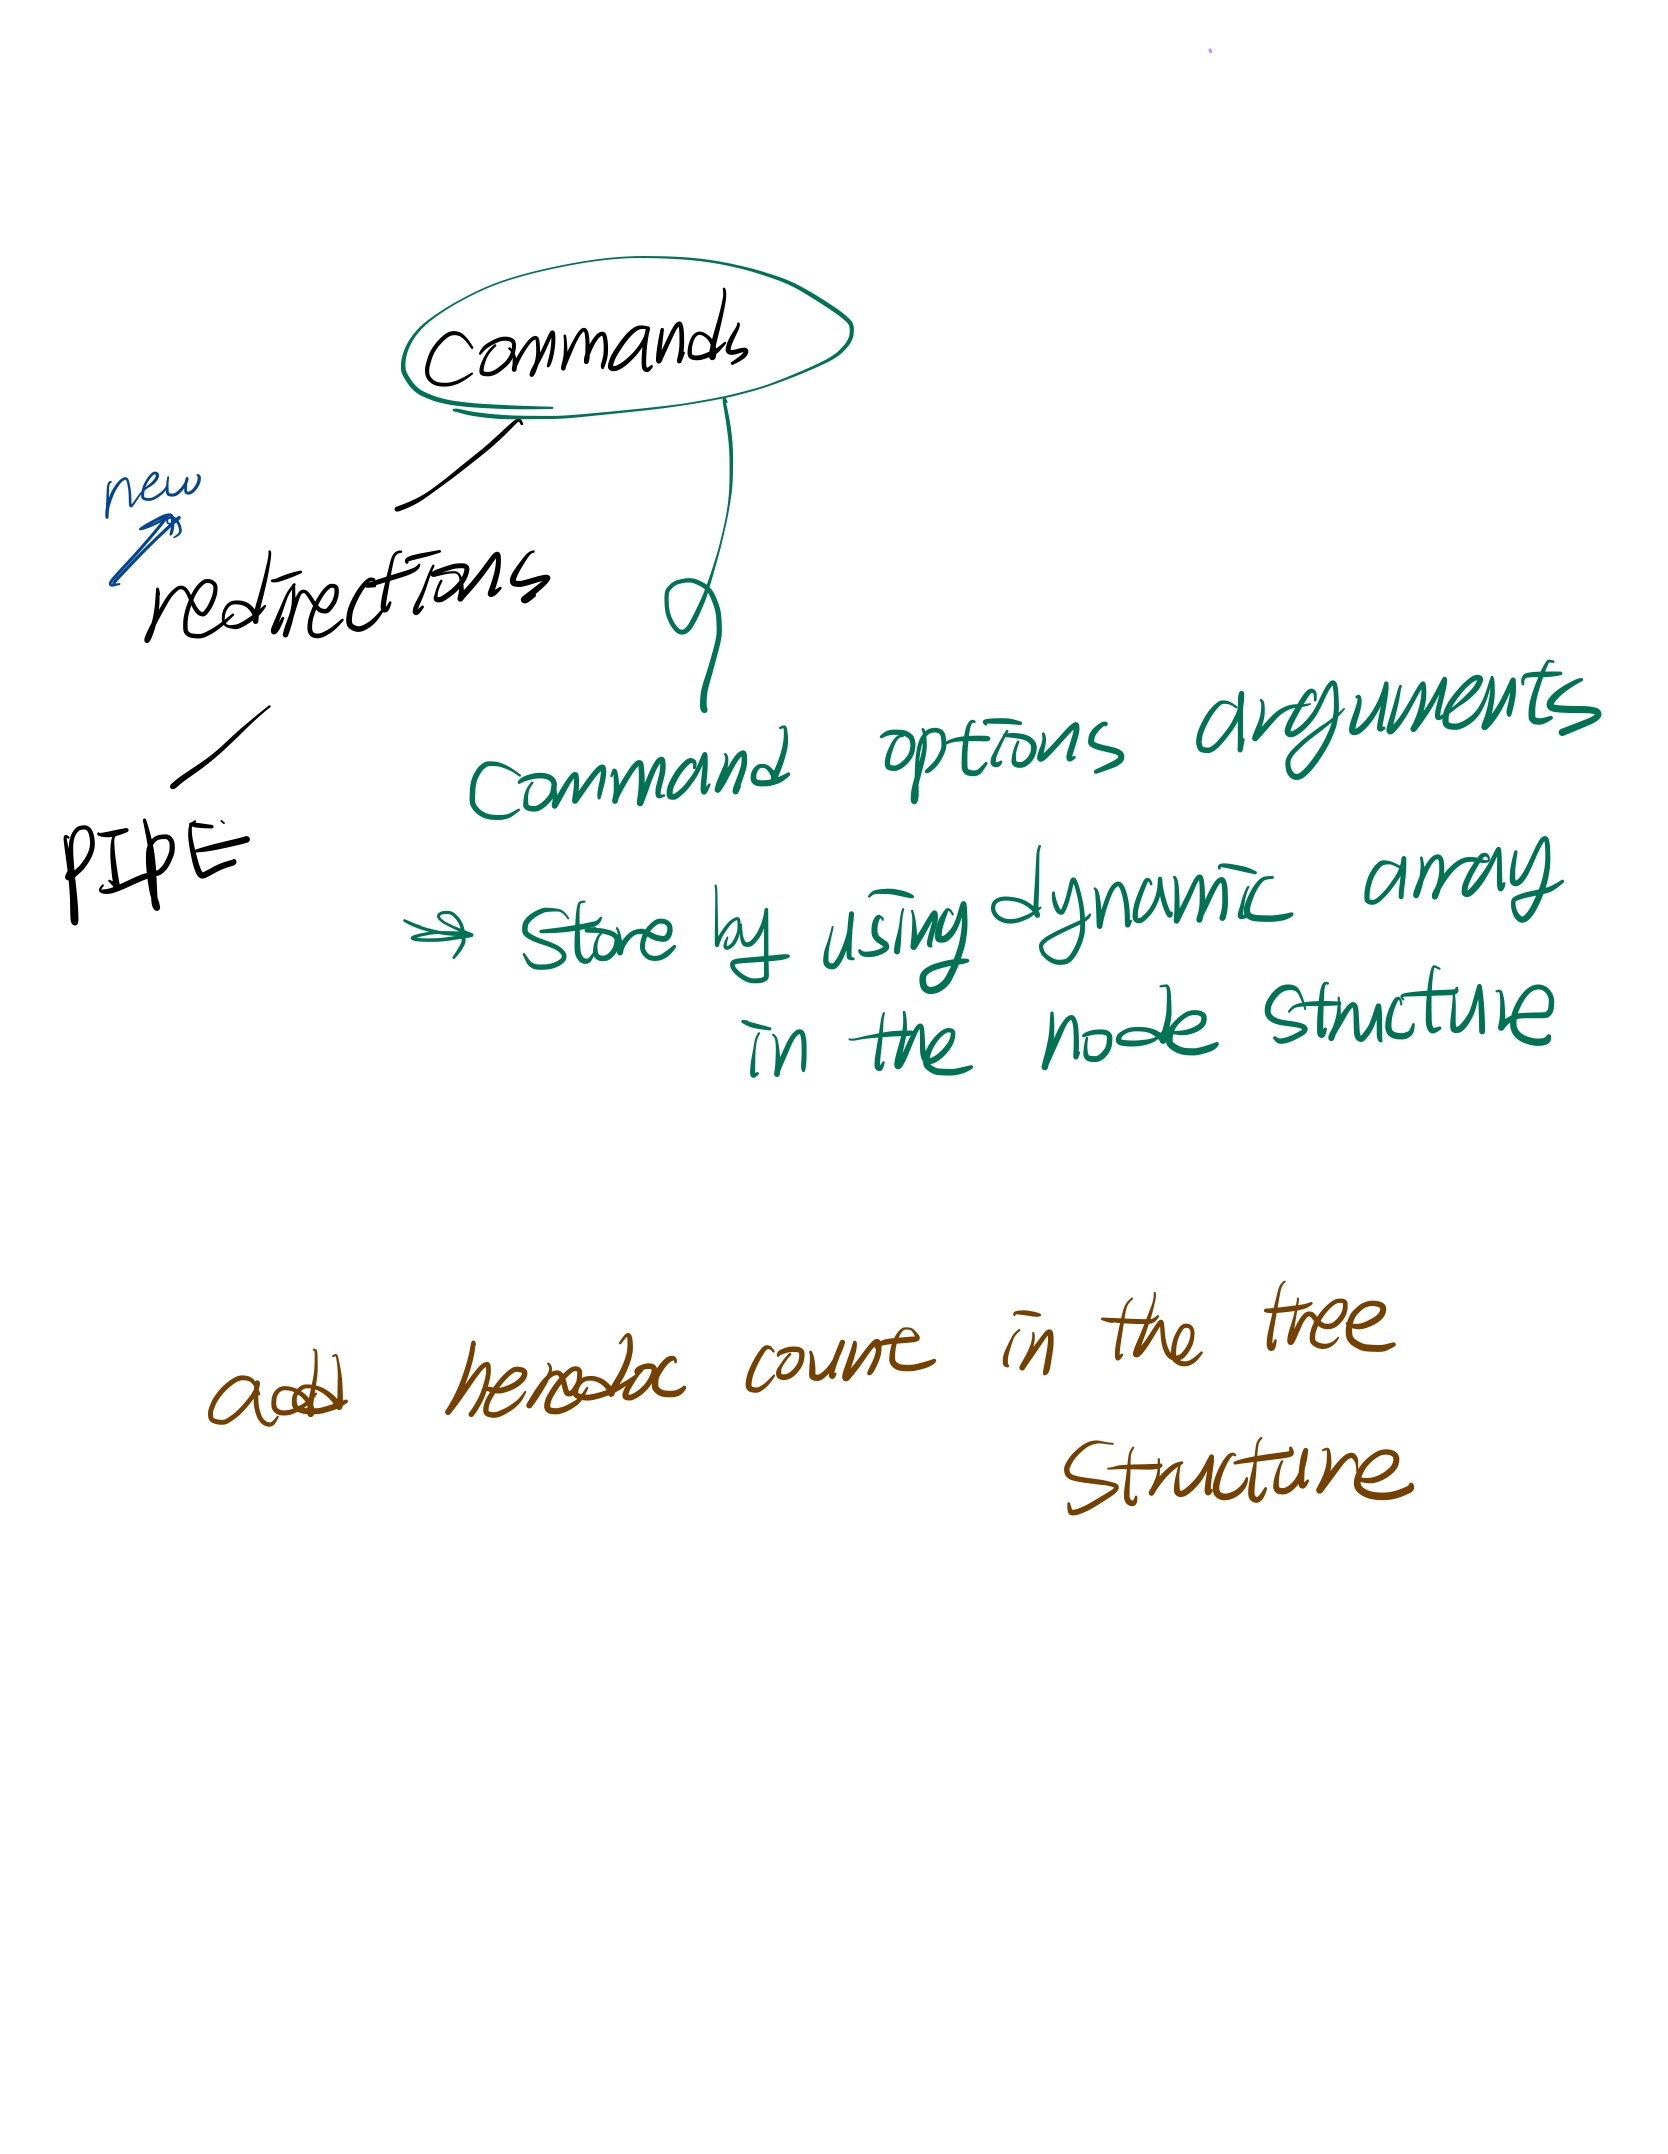 Commands
new
redirections
PIPE
Command options arguments
→ Store by using dynamic array
in the node structure
add heredoc count in the tree
Structure